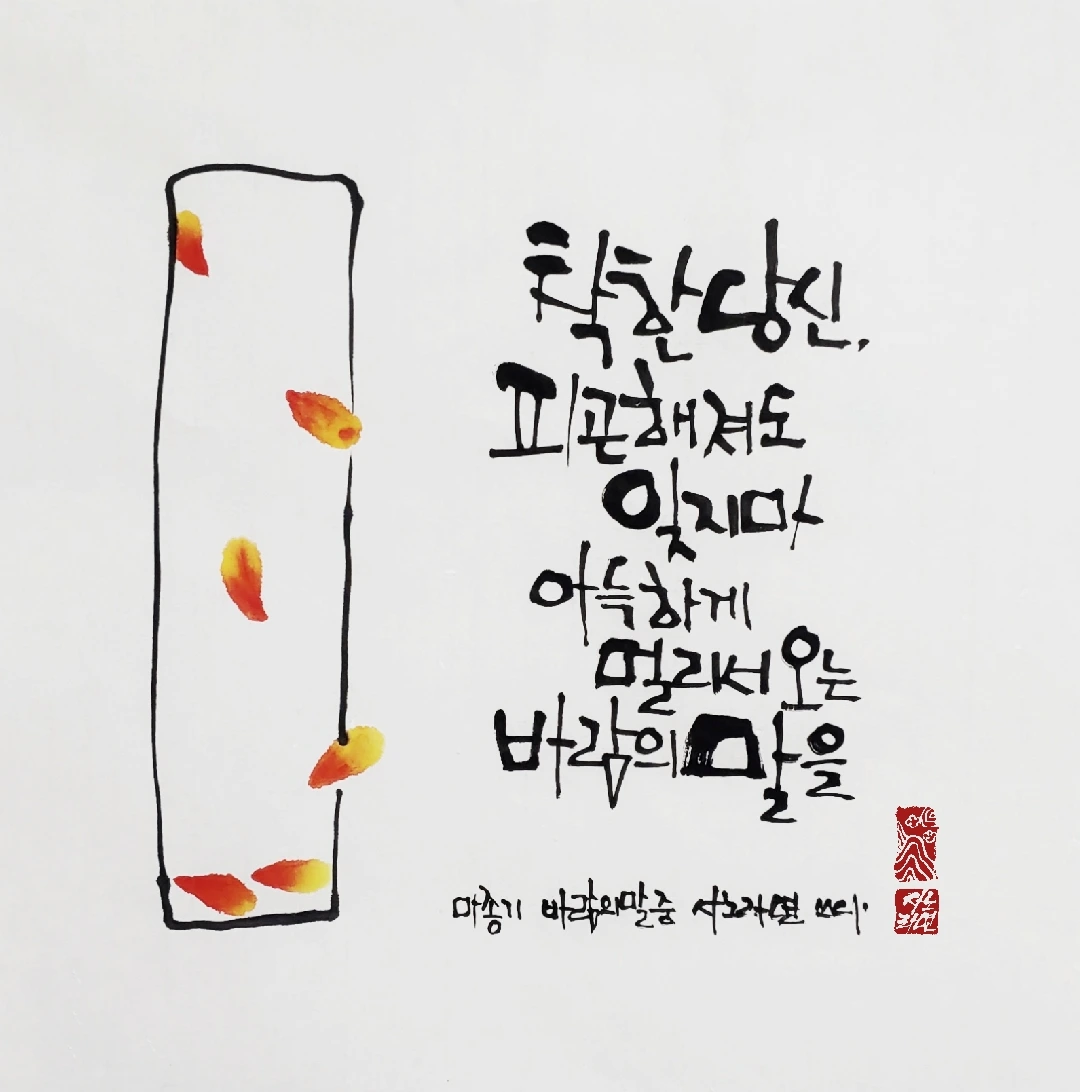 착한 당신,
피곤해져도
잊지마
아득하게
멀리서 오는
바람의 말을
마종기 바람의말 중 쓰다.